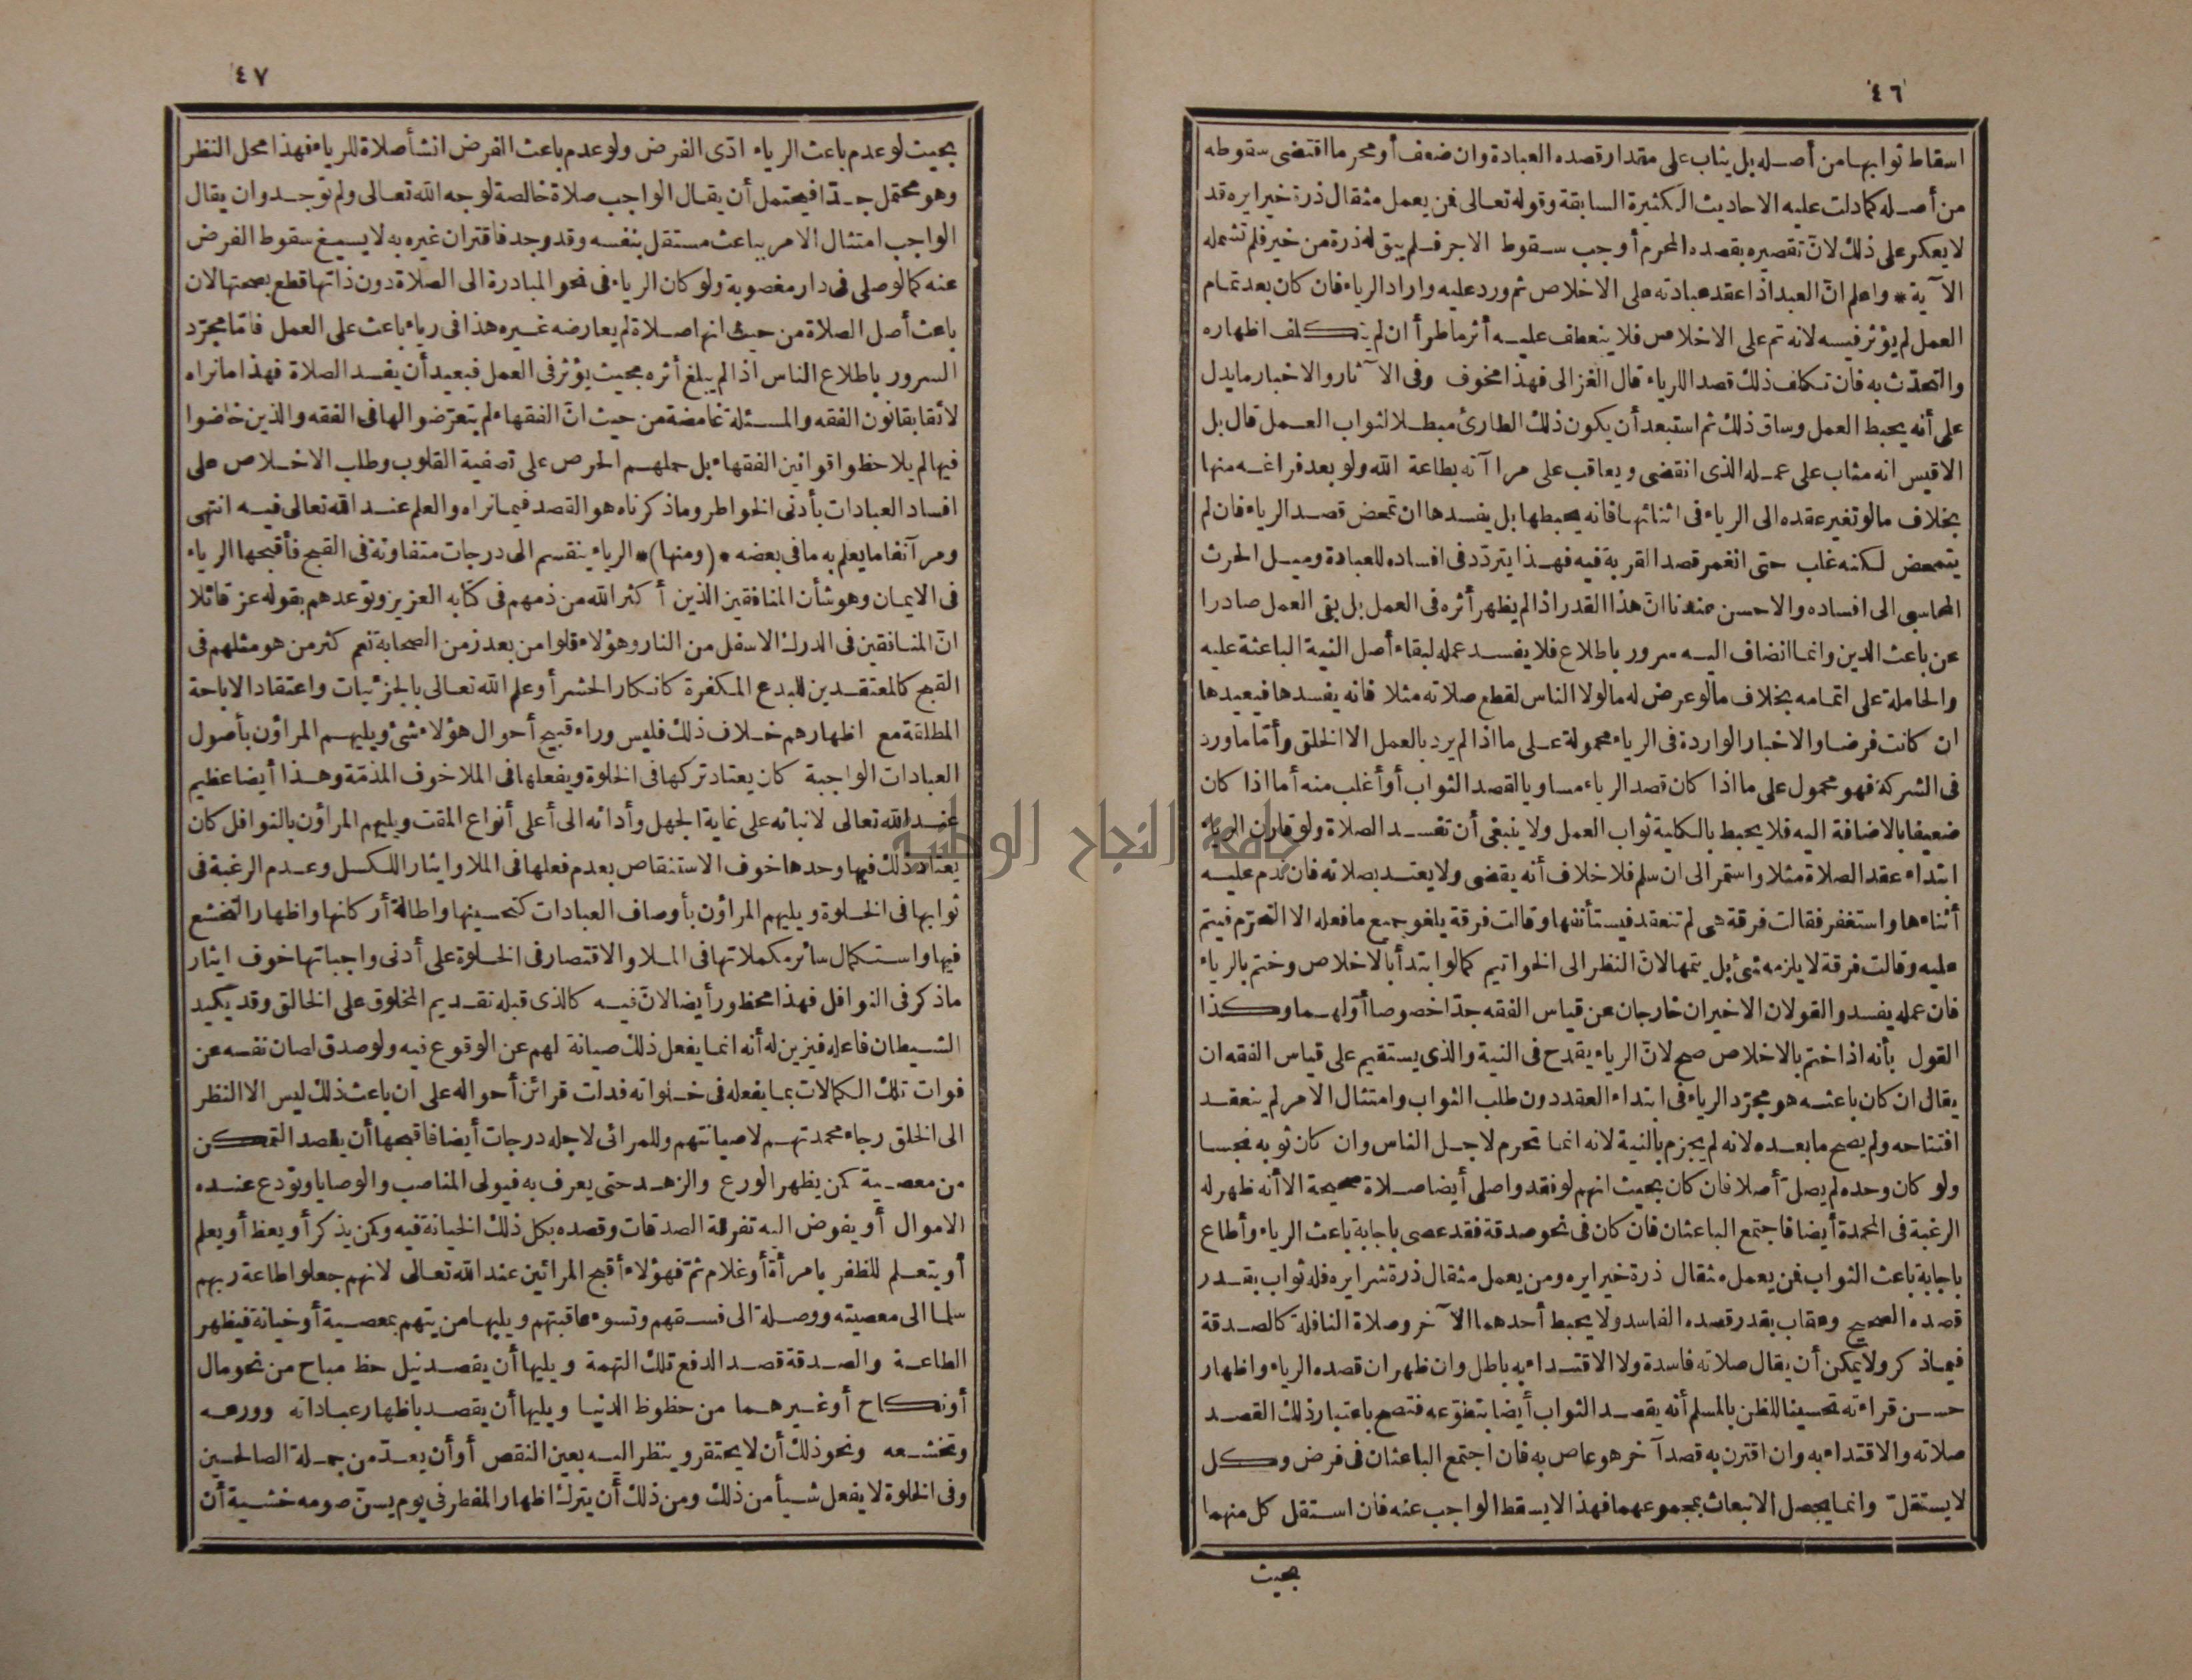 ٤٦
اسقاط ثوابها من أصله بل يثاب على مقدار قصده العبادة وان ضعف أو محرما اقتضى سقوطه
من أصله كما دلت عليه الاحاديث الكثيرة السابقة وقوله تعالى فمن يعمل مثقال ذرة خيرا يره قد
لا يعكر على ذلك لانّ تقصيره بقصده المحرم أوجب سقوط الاجر فلم يبق له ذرة من خير فلم تشمله
الآية * واعلم انّ العبد اذا عقد عبادته على الاخلاص ثم ورد عليه وارد الرياء فان كان بعد تمام
العمل لم يؤثر فيه لانه تم على الاخلاص فلا ينعطف عليه أثر ما طرأ ان لم يتكلف اظهاره
والتحدّث به فان تكلف ذلك قصدا للرياء قال الغزالى فهذا مخوف وفى الآثار والاخبار ما يدل
على أنه يحبط العمل وساق ذلك ثم استبعد أن يكون ذلك الطارئ مبطلا لثواب العمل قال بل
الاقيس انه مثاب على عمله الذى انقضى ويعاقب على مراآته بطاعة الله ولو بعد فراغه منها
بخلاف ما لو تغير عقده الى الرياء فى اثنائها فانه يحبطها بل يفسدها ان تمحض قصد الرياء فان لم
يتمحض لكنه غلب حتى انغمر قصد القربة فيه فهذا يتردّد فى افساده للعبادة وميل الحرث
المحاسبى الى افساده والاحسن عندنا انّ هذا القدر اذا لم يظهر أثره فى العمل بل بقى العمل صادرا
عن باعث الدين وانما انضاف اليه سرور باطلاع فلا يفسد عمله لبقاء أصل النية الباعثة عليه
والحاملة على اتمامه بخلاف ما لو عرض له ما لولا الناس لقطع صلاته مثلا فانه يفسدها فيعيدها
ان كانت فرضا والاخبار الواردة فى الرياء محمولة على ما اذا لم يرد بالعمل الا الخلق وأمّا ما ورد
فى الشركة فهو محمول على ما اذا كان قصد الرياء مساويا لقصد الثواب أو أغلب منه أما اذا كان
ضعيفا بالاضافة اليه فلا يحبط بالكلية ثواب العمل ولا ينبغى أن تفسد الصلاة ولو قارن الرياء
ابتداء عقد الصلاة مثلا واستمر الى ان سلم فلا خلاف أنه يقضى ولا يعتد بصلاته فان ندم عليه
أثناءها واستغفر فقالت فرقة هى لم تنعقد فيستأنفها وقالت فرقة يلغو جميع ما فعله الا التحرّم فيتم
عليه وقالت فرقة لا يلزمه شئ بل يتمها لانّ النظر الى الخواتيم كما لو ابتدأ بالاخلاص وختم بالرياء
فان عمله يفسد والقولان الاخيران خارجان عن قياس الفقه جدّا خصوصا أوّلهما وكذا
القول بأنه اذا ختم بالاخلاص صح لانّ الرياء يقدح فى النية والذى يستقيم على قياس الفقه ان
يقال ان كان باعثه هو مجرّد الرياء فى ابتداء العقد دون طلب الثواب وامتثال الامر لم ينعقد
افتتاحه ولم يصح ما بعده لانه لم يجزم بالنية لانه انما تحرم لاجل الناس وان كان ثوبه نجسا
ولو كان وحده لم يصلّ أصلا فان كان بحيث انهم لو فقدوا صلى أيضا صلاة صحيحة الا أنه ظهر له
الرغبة فى المحمدة أيضا فاجتمع الباعثان فان كان فى نحو صدقة فقد عصى باجابة باعث الرياء وأطاع
باجابة باعث الثواب فمن يعمل مثقال ذرة خيرا يره ومن يعمل مثقال ذرة شرا يره فله ثواب بقدر
قصده الصحيح وعقاب بقدر قصده الفاسد ولا يحبط أحدهما الآخر وصلاة النافلة كالصدقة
فيما ذكر ولا يمكن أن يقال صلاته فاسدة ولا الاقتداء به باطل وان ظهر ان قصده الرياء واظهار
حسن قراءته تحسينا للظن بالمسلم أنه يقصد الثواب أيضا بتطوّعه فتصح باعتبار ذلك القصد
صلاته والاقتداء به وان اقترن به قصد آخر هو عاص به فان اجتمع الباعثان فى فرض وكل
لا يستقلّ وانما يحصل الانبعاث بمجموعهما فهذا لا يسقط الواجب عنه فان استقل كل منهما
بحيث
٤٧
بحيث لو عدم باعث الرياء ادّى الفرض ولو عدم باعث الفرض انشأ صلاة للرياء فهذا محل النظر
وهو محتمل جدّا فيحتمل أن يقال الواجب صلاة خالصة لوجه الله تعالى ولم توجد وان يقال
الواجب امتثال الامر بباعث مستقل بنفسه وقد وجد فاقتران غيره به لا يسيغ سقوط الفرض
عنه كما لو صلى فى دار مغصوبة ولو كان الرياء فى نحو المبادرة الى الصلاة دون ذاتها قطع بصحتها لان
باعث أصل الصلاة من حيث انها صلاة لم يعارضه غيره هذا فى رياء باعث على العمل فامّا مجرّد
السرور باطلاع الناس اذا لم يبلغ أثره بحيث يؤثر فى العمل فبعيد أن يفسد الصلاة فهذا ما نراه
لائقا بقانون الفقه والمسئلة غامضة من حيث انّ الفقهاء لم يتعرّضوا لها فى الفقه والذين خاضوا
فيها لم يلاحظوا قوانين الفقهاء بل حملهم الحرص على تصفية القلوب وطلب الاخلاص على
افساد العبادات بأدنى الخواطر وما ذكرناه هو القصد فيما نراه والعلم عند الله تعالى فيه انتهى
ومر آنفا ما يعلم به ما فى بعضه *(ومنها)* الرياء ينقسم الى درجات متفاوتة فى القبح فأقبحها الرياء
فى الايمان وهو شأن المنافقين الذين أكثر الله من ذمهم فى كتابه العزيز وتوعدهم بقوله عز قائلا
انّ المنافقين فى الدرك الاسفل من النار وهؤلاء قلوا من بعد زمن الصحابة نعم كثر من هو مثلهم فى
القبح كالمعتقدين للبدع المكفرة كانكار الحشر أو علم الله تعالى بالجزئيات واعتقاد الاباحة
المطلقة مع اظهارهم خلاف ذلك فليس وراء قبيح أحوال هؤلاء شئ ويليهم المراؤن بأصول
العبادات الواجبة كان يعتاد تركها فى الخلوة ويفعلها فى الملا خوف المذمّة وهذا أيضا عظيم
عند الله تعالى لانبائه على غاية الجهل وأدائه الى أعلى أنواع المقت ويليهم المراؤن بالنوافل كان
يعتاد ذلك فيها وحدها خوف الاستنقاص بعدم فعلها فى الملا وايثار الكسل وعدم الرغبة فى
ثوابها فى الخلوة ويليهم المراؤن بأوصاف العبادات كتحسينها واطالة أركانها واظهار التخشع
فيها واستكمال سائر مكملاتها فى الملا والاقتصار فى الخلوة على أدنى واجباتها خوف ايثار
ماذكر فى النوافل فهذا محظور أيضا لانّ فيه كالذى قبله تقديم المخلوق على الخالق وقد يكيد
الشيطان فاعله فيزين له أنه انما يفعل ذلك صيانة لهم عن الوقوع فيه ولو صدق لصان نفسه عن
فوات تلك الكمالات بما يفعله فى خلواته فدلت قرائن أحواله على ان باعث ذلك ليس الا النظر
الى الخلق رجاء محمدتهم لا صيانتهم وللمرائى لاجله درجات أيضا فاقبحها أن يقصد التمكن
من معصية كمن يظهر الورع والزهد حتى يعرف به فيولى المناصب والوصايا وتودع عنده
الاموال أو يفوض اليه تفرقة الصدقات وقصده بكل ذلك الخيانة فيه وكمن يذكر أو يعظ أو يعلم
أو يتعلم للظفر بامرأة أو غلام ثمّ فهؤلاء أقبح المرائين عند الله تعالى لانهم جعلوا طاعة ربهم
سلما الى معصيته ووصلة الى فسقهم وتسوء عاقبتهم ويليها من يتهم بمعصية أو خيانة فيظهر
الطاعة والصدقة قصد الدفع تلك التهمة ويليها أن يقصد نيل حظ مباح من نحو مال
أو نكاح أو غيرهما من حظوظ الدنيا ويليها أن يقصد باظهار عباداته وورعه
وتخشعه ونحو ذلك أن لا يحتقر وينظر اليه بعين النقص أو أن يعدّ من جملة الصالحين
وفى الخلوة لا يفعل شيأ من ذلك ومن ذلك أن يترك اظهار المفطر فى يوم يسنّ صومه خشية أن
جامعة النجاح الوطنية